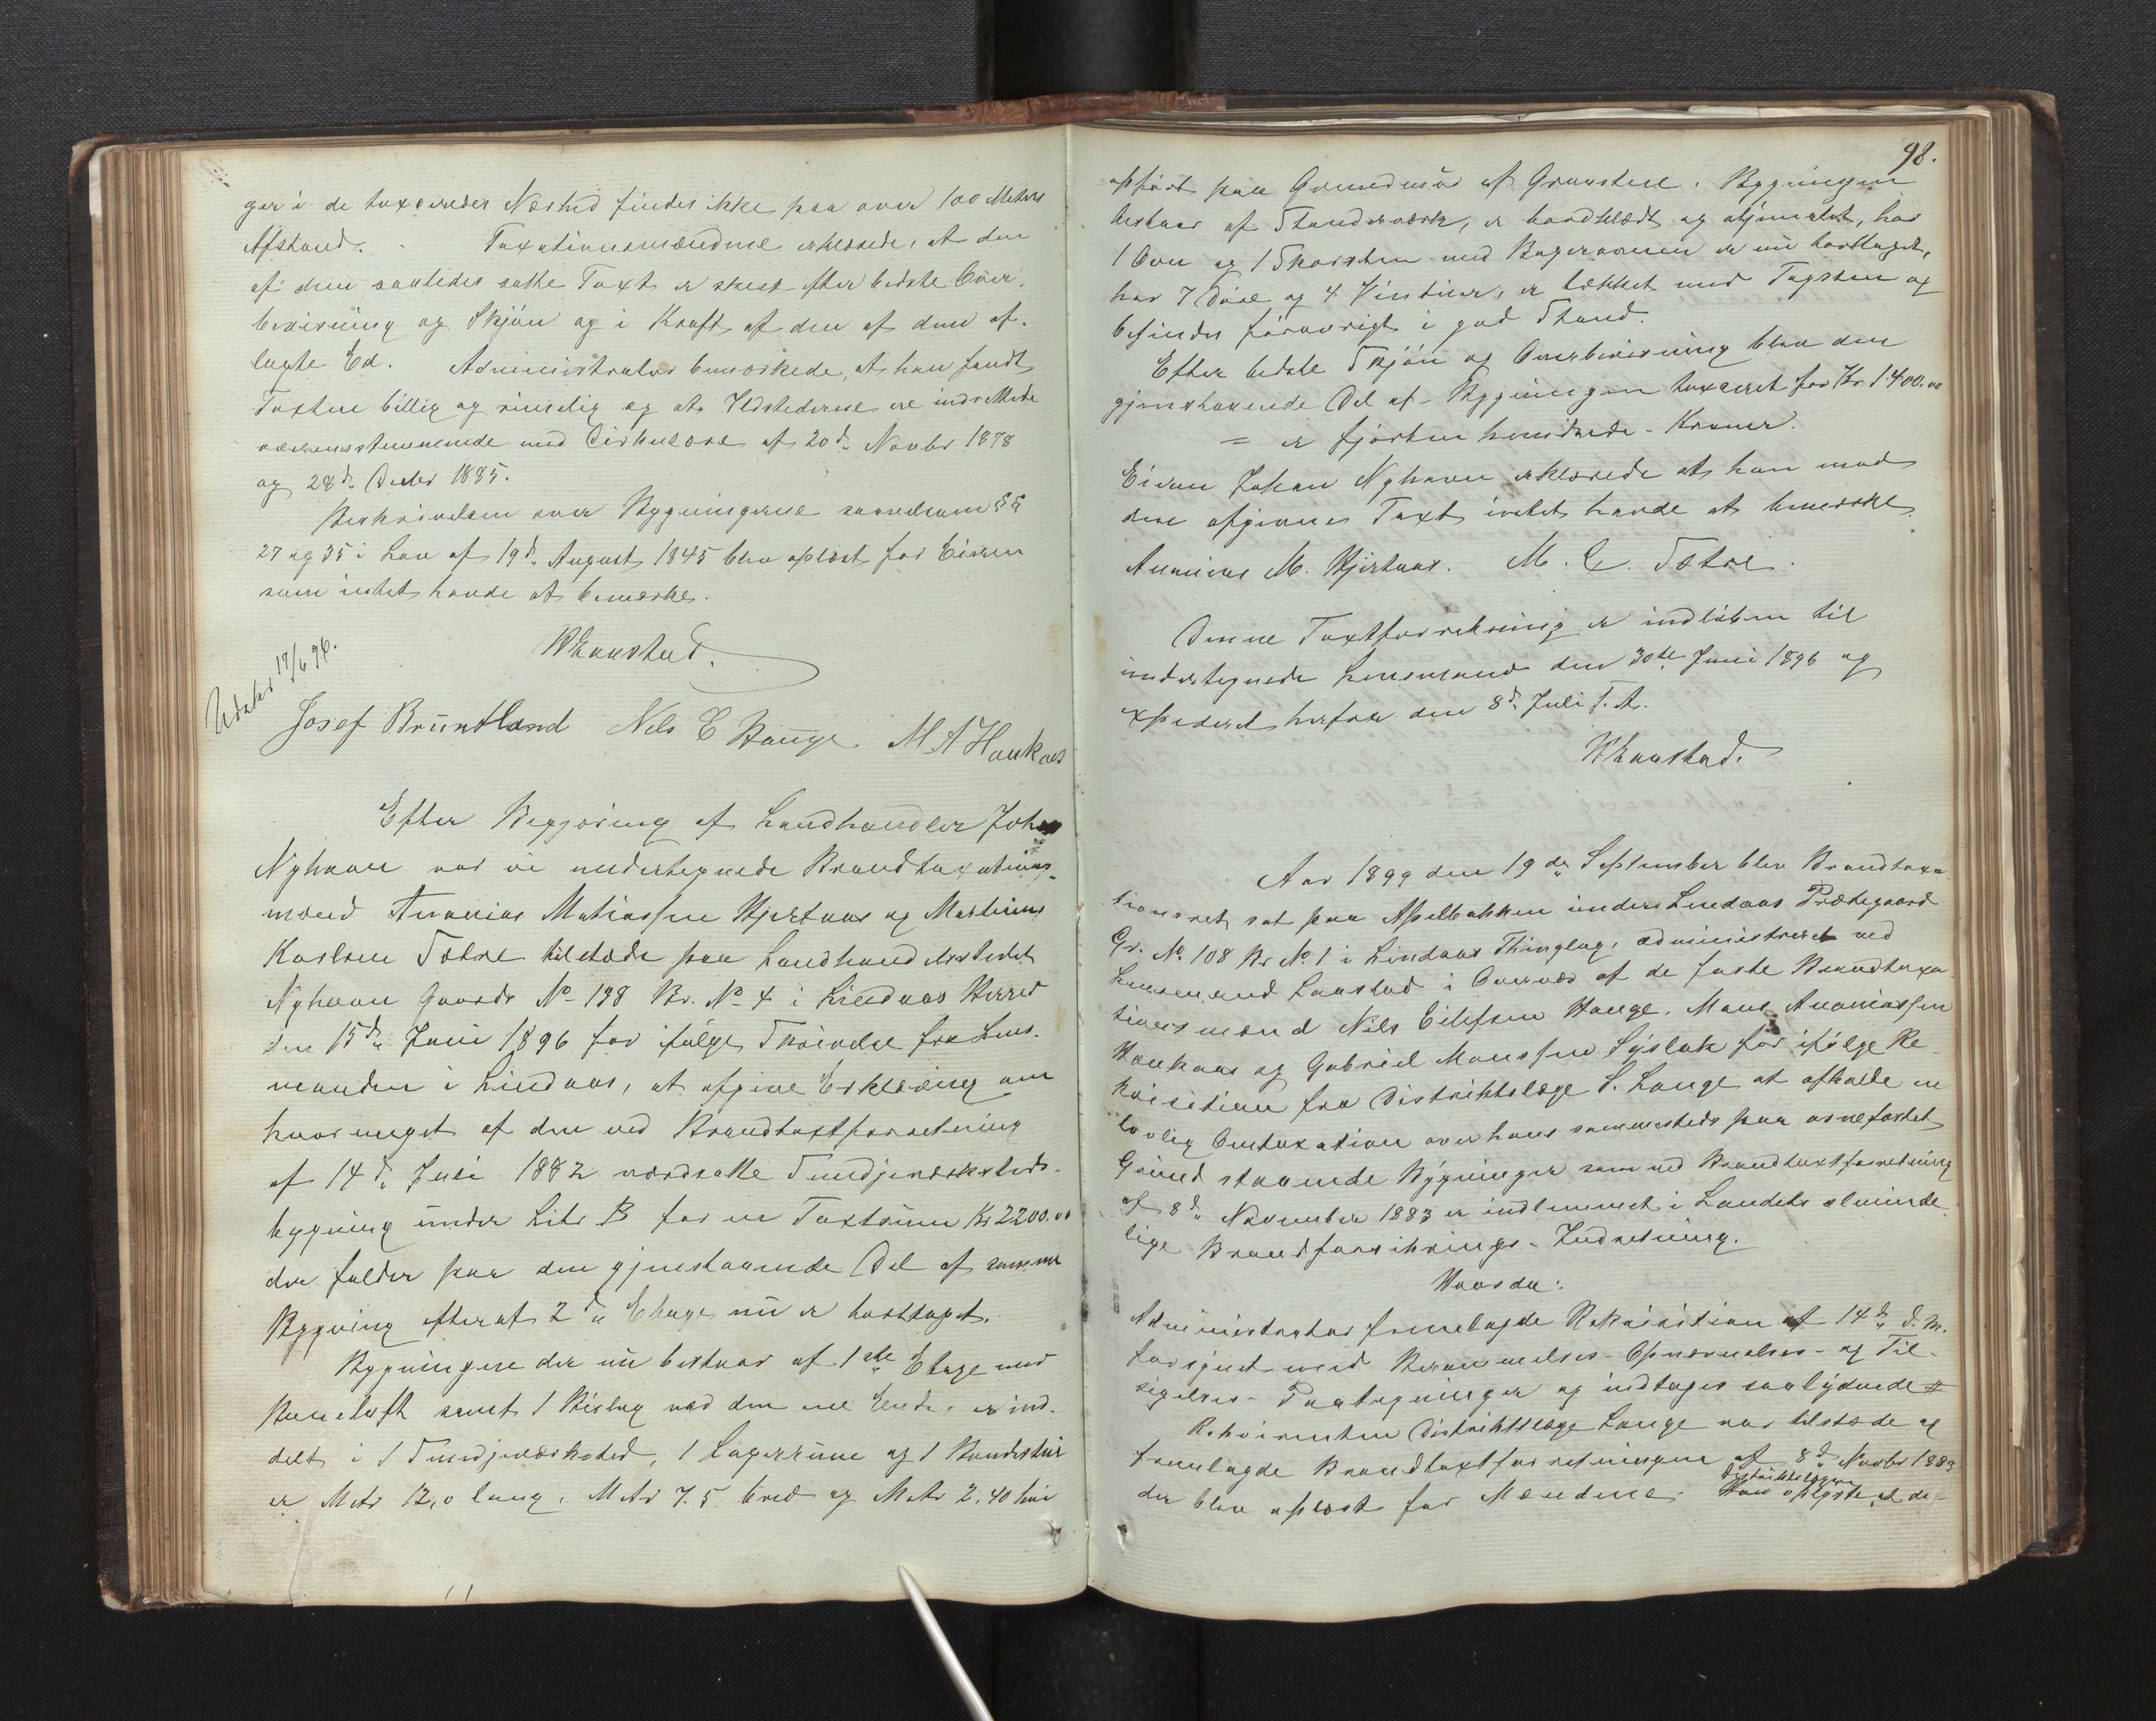 ger i de taxeredes Nærhed findes ikke paa over 100 Meters
Afstand. Taxationsmændene erklærede, at den
af dem saaledes satte Taxt er skeet efter bedste Over-
bevisning og Skjøn og i Kraft af den af dem af-
lagte Ed. Administrator bemærkede, at han fandt
Taxten billig og rimelig og at Ildstederne ere indrettede
overensstemmende med Cirkulære af 20de Novbr 1878
og 28de Decbr 1885.
Beskrivelsen over Bygningerne saavelsom §§
27 og 35 i Lov af 19de August 1845 blev oplæst for Eieren
som intet havde at bemærke.
Udskr 17/6 96.
Josef Bruntland Nils E Hauge M A Haukaas
Efter Begjæring af Landhandler Johan
Nyhavn var vi undertegnede Brandtaxations-
mænd Ananias Matiassen Hjertaas og Martinus
Karlsen Sætre tilstæde paa Landhandlerstedet
Nyhavn Gaards No 198 Br. No 4 i Lindaas Herred
den 15de Juni 1896 for ifølge Skrivelse fra Lens-
manden i Lindaas, at afgive Erklæring om
hvormeget af den ved Brandtaxtforretning
af 14de Juli 1882 værdsatte Tøndjeværksteds-
bygning under Litr B for en Taxtsum Kr 2200.00
der falder paa den gjenstaaende Del af samme
Bygning efterat 2den Etage nu er borttaget.
Bygningen der nu bestaar af 1ste Etage med
Rumloft samt 1 Bislag ved den ene Ende, er ind-
delt i 1 Tøndjeværksted, 1 Lagerrum og 1 Bondestue
er Metr 12,0 lang, Metr 7.5 bred og Metr 2,40 høi
98.
opført paa Grundmur af Graasten. Bygningen
bestaar af Stenderværk, er bordklædt og oljemalet, har
1 Ovn og 1 Skorsten med Bagerovnen er nu borttaget,
har 7 Døre og 4 Vinduer, er tækket med Tagsten og
befindes forøvrigt i god Stand.
Efter bedste Skjøn og Overbevisning blev den
gjenstaaende Del af Bygningen taxeret for Kr 1400.00
= er fjorten hundrede Kroner.
Eieren Johan Nyhavn erklærede at han mod
den afgivne Taxt intet havde at bemærke.
Ananias M. Hjertaas. M. C. Sætre.
Denne Taxtforretning er indløben til
undertegnede Lensmand den 30te Juni 1896 og
expederet herfra den 8de Juli s. A.
Aar 1899 den 19de September blev Brandtaxa-
tionsret sat paa Apelbakken under Lindaas Prestegaard
Gr. No 108 Br No 1 i Lindaas Thinglag, administreret ved
Lensmand Laastad i Overvær af de faste Brandtaxa-
tionsmænd Nils Eilefsen Hauge, Mons Ananiassen
Haukaas og Gabriel Monssen Syslak for ifølge Re-
kvisition fra Distriktslæge S. Lange at afholde en
lovlig Omtaxation over hans sammesteds paa
Grund staaende Bygninger som ved Brandtaxtforretning
af 8de November 1883 er indlemmet i Landets alminde-
lige Brandforsikrings-Indretning.
Hvorda:
Administrator fremlagde Rekvisition af 14de d. M.
forsynet med Berammelses- Opnævnelses- og Til-
sigelses-Paategninger og indtages saalydende #
Rekvirenten Distriktslæge Lange var tilstæde og
fremlagde Brandtaxtforretningen af 8de Novbr 1883
der blev oplæst for Mændene. Distriktslægen oplyste at de